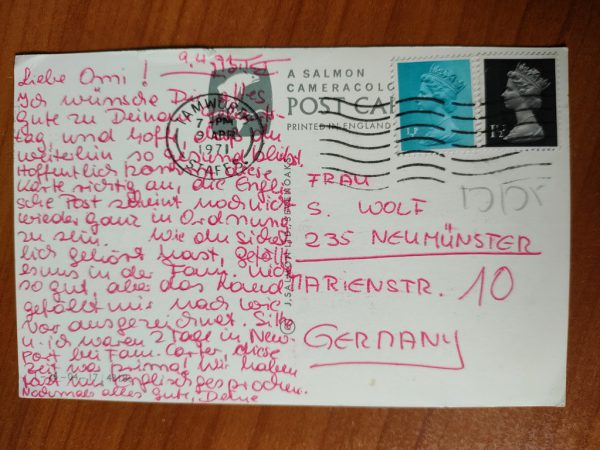 9.4.71
Liebe Omi!
Ich wünsche Dir alles
Gute zu Deinem
tag, und hoffe, daß Du
weiterhin so gesund bleibst.
Hoffentlich kommt diese
Karte richtig an, die Engli-
sche Post scheint noch nicht
wieder ganz in Ordnung
zu sein. Wie du sicher-
lich gehört hast, gefällt
es uns in der Fam. nicht
so gut, aber das Land
gefällt mir nach wie
vor ausgezeichnet. Silke
u. ich waren 2 Tage in New-
port bei Fam. Carter, diese
Zeit war prima! Wir haben
fast nur Englisch gesprochen.
Nochmals alles gute, Deine
A SALMON
CAMERACOLO
POST CA
PRINTED IN ENGLAND
TAMWORTH
7 PM
9 APR
1971
STAFFS
© J. SALMON LTD. SEVENOAKS
1½P
FRAU
S. WOLF
235 NEUMÜNSTER
MARIENSTR. 10
GERMANY